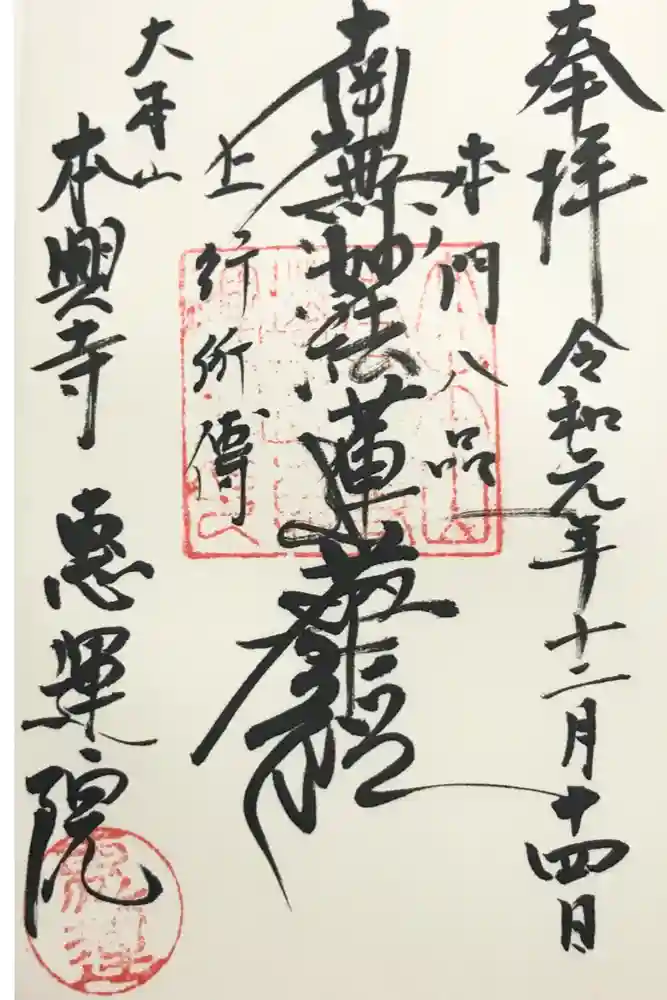 奉拝
令和元年十二月十四日
本門八品
南無妙法蓮華経
上行所傳
大本山
本興寺 恵運院